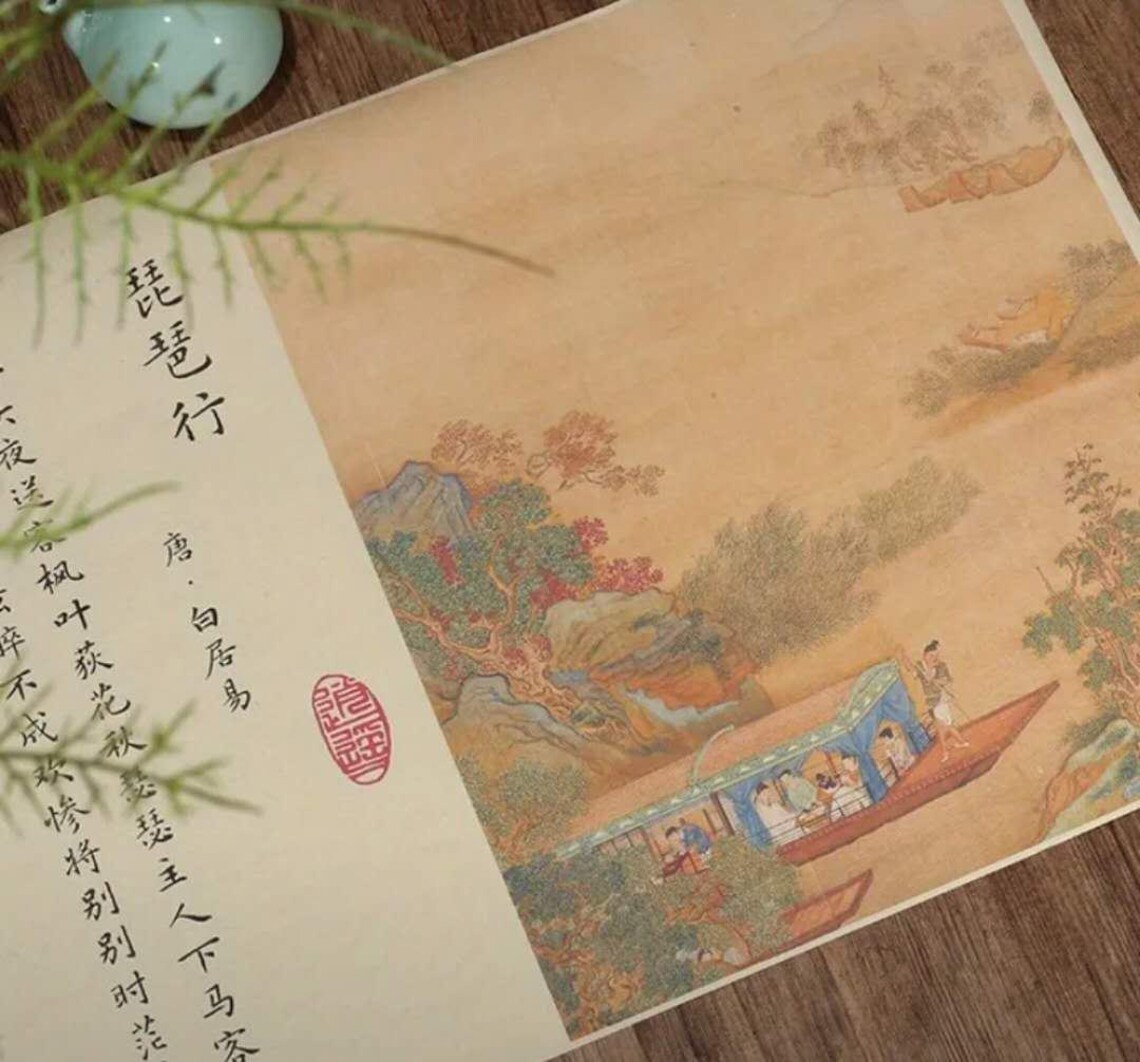 琵琶行
唐·白居易
夜送客枫叶荻花秋瑟瑟主人下马客
醉不成欢惨将别别时茫